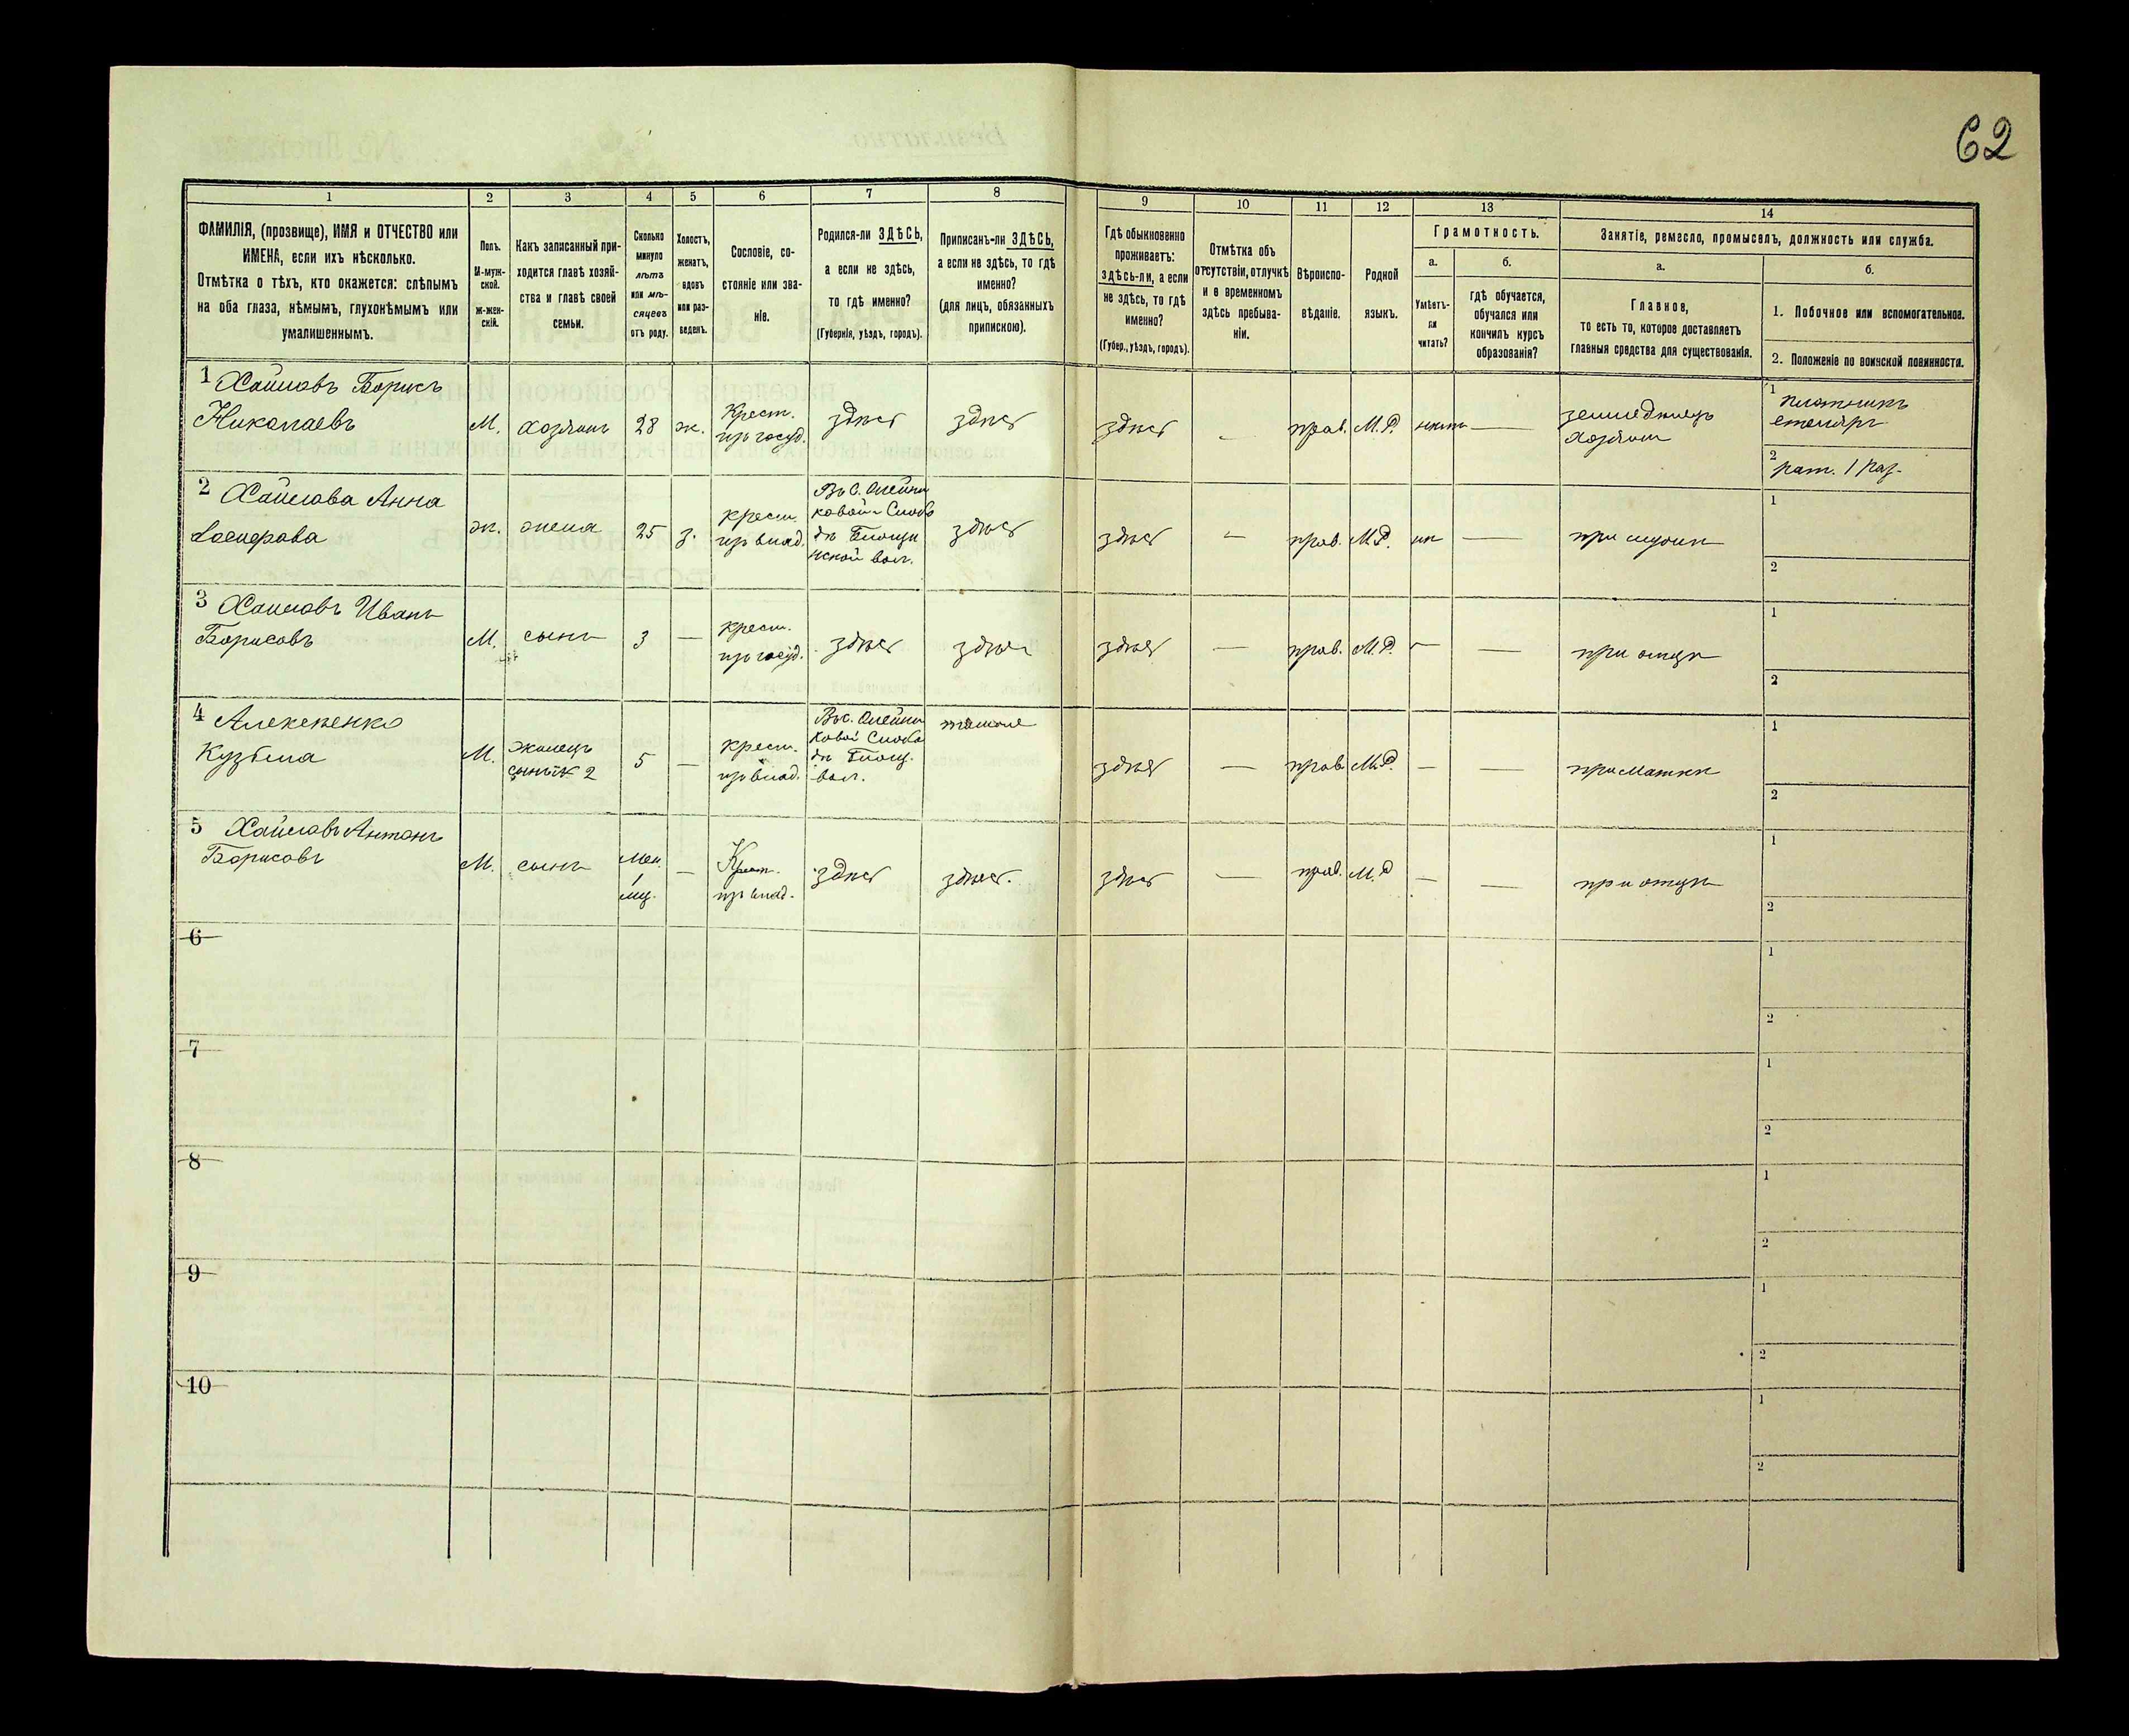 62
1 2 3 4 5 6 7 8 9 10 11 12 13 14
ФАМИЛІЯ, (прозвище), ИМЯ и ОТЧЕСТВО или
ИМЕНА, если ихъ нѣсколько.
Отмѣтка о тѣхъ, кто окажется: слѣпымъ
на оба глаза, нѣмымъ, глухонѣмымъ или
умалишеннымъ.
Полъ.
М-муж-
ской.
ж-жен-
скій.
Какъ записанный при-
ходится главѣ хозяй-
ства и главѣ своей
семьи.
Сколько
минуло
лѣтъ
или мѣ-
сяцевъ
отъ роду.
Холостъ,
женатъ,
вдовъ
или раз-
веденъ.
Сословіе, со-
стояніе или зва-
ніе.
Родился-ли ЗДѢСЬ,
а если не здѣсь,
то гдѣ именно?
(Губернія, уѣздъ, городъ).
Приписанъ-ли ЗДѢСЬ,
а если не здѣсь, то гдѣ
именно?
(для лицъ, обязанныхъ
припискою).
Гдѣ обыкновенно
проживаетъ:
здѣсь-ли, а если
не здѣсь, то гдѣ
именно?
(Губер., уѣздъ, городъ).
Отмѣтка объ
отсутствіи, отлучкѣ
и о временномъ
здѣсь пребыва-
ніи.
Вѣроиспо-
вѣданіе.
Родной
языкъ.
Грамотность.
а.
Умѣетъ-
ли
читать?
б.
гдѣ обучается,
обучался или
кончилъ курсъ
образованія?
Занятіе, ремесло, промыселъ, должность или служба.
а.
Главное,
то есть то, которое доставляетъ
главныя средства для существованія.
б.
1. Побочное или вспомогательное.
2. Положеніе по воинской повинности.
1 Борисъ
Николаевъ
М. хозяинъ 28 ж. Крест.
изъ госуд. здѣсь здѣсь здѣсь - прав. М.Р. нѣтъ —
земледѣлецъ
хозяинъ
1 плотникъ
столяръ
2 рат. 1 раз.
2 Анна
ж. жена 25 з. крест.
изъ влад.
Въ с. Олейни
ковой Слобо
дѣ
вол.
здѣсь здѣсь — прав. М.Р. — при мужѣ
1
2
3 Иванъ
Борисовъ
М. сынъ 3 — крест.
изъ госуд. здѣсь здѣсь здѣсь — прав. М.Р. — — при отцѣ
1
2
4
Кузьма
М. 5 — крест.
изъ влад.
Въ с. Олейни
ковой Слобо
дѣ
вол.
здѣсь — прав. М.Р. — — при маткѣ
1
2
5 Антонъ
Борисовъ
М. сынъ мен.
1
мц. — Крест.
изъ влад. здѣсь здѣсь. здѣсь — прав. М.Р — — при отцѣ
1
2
6
1
2
7
1
2
8
1
2
9
1
2
10
1
2